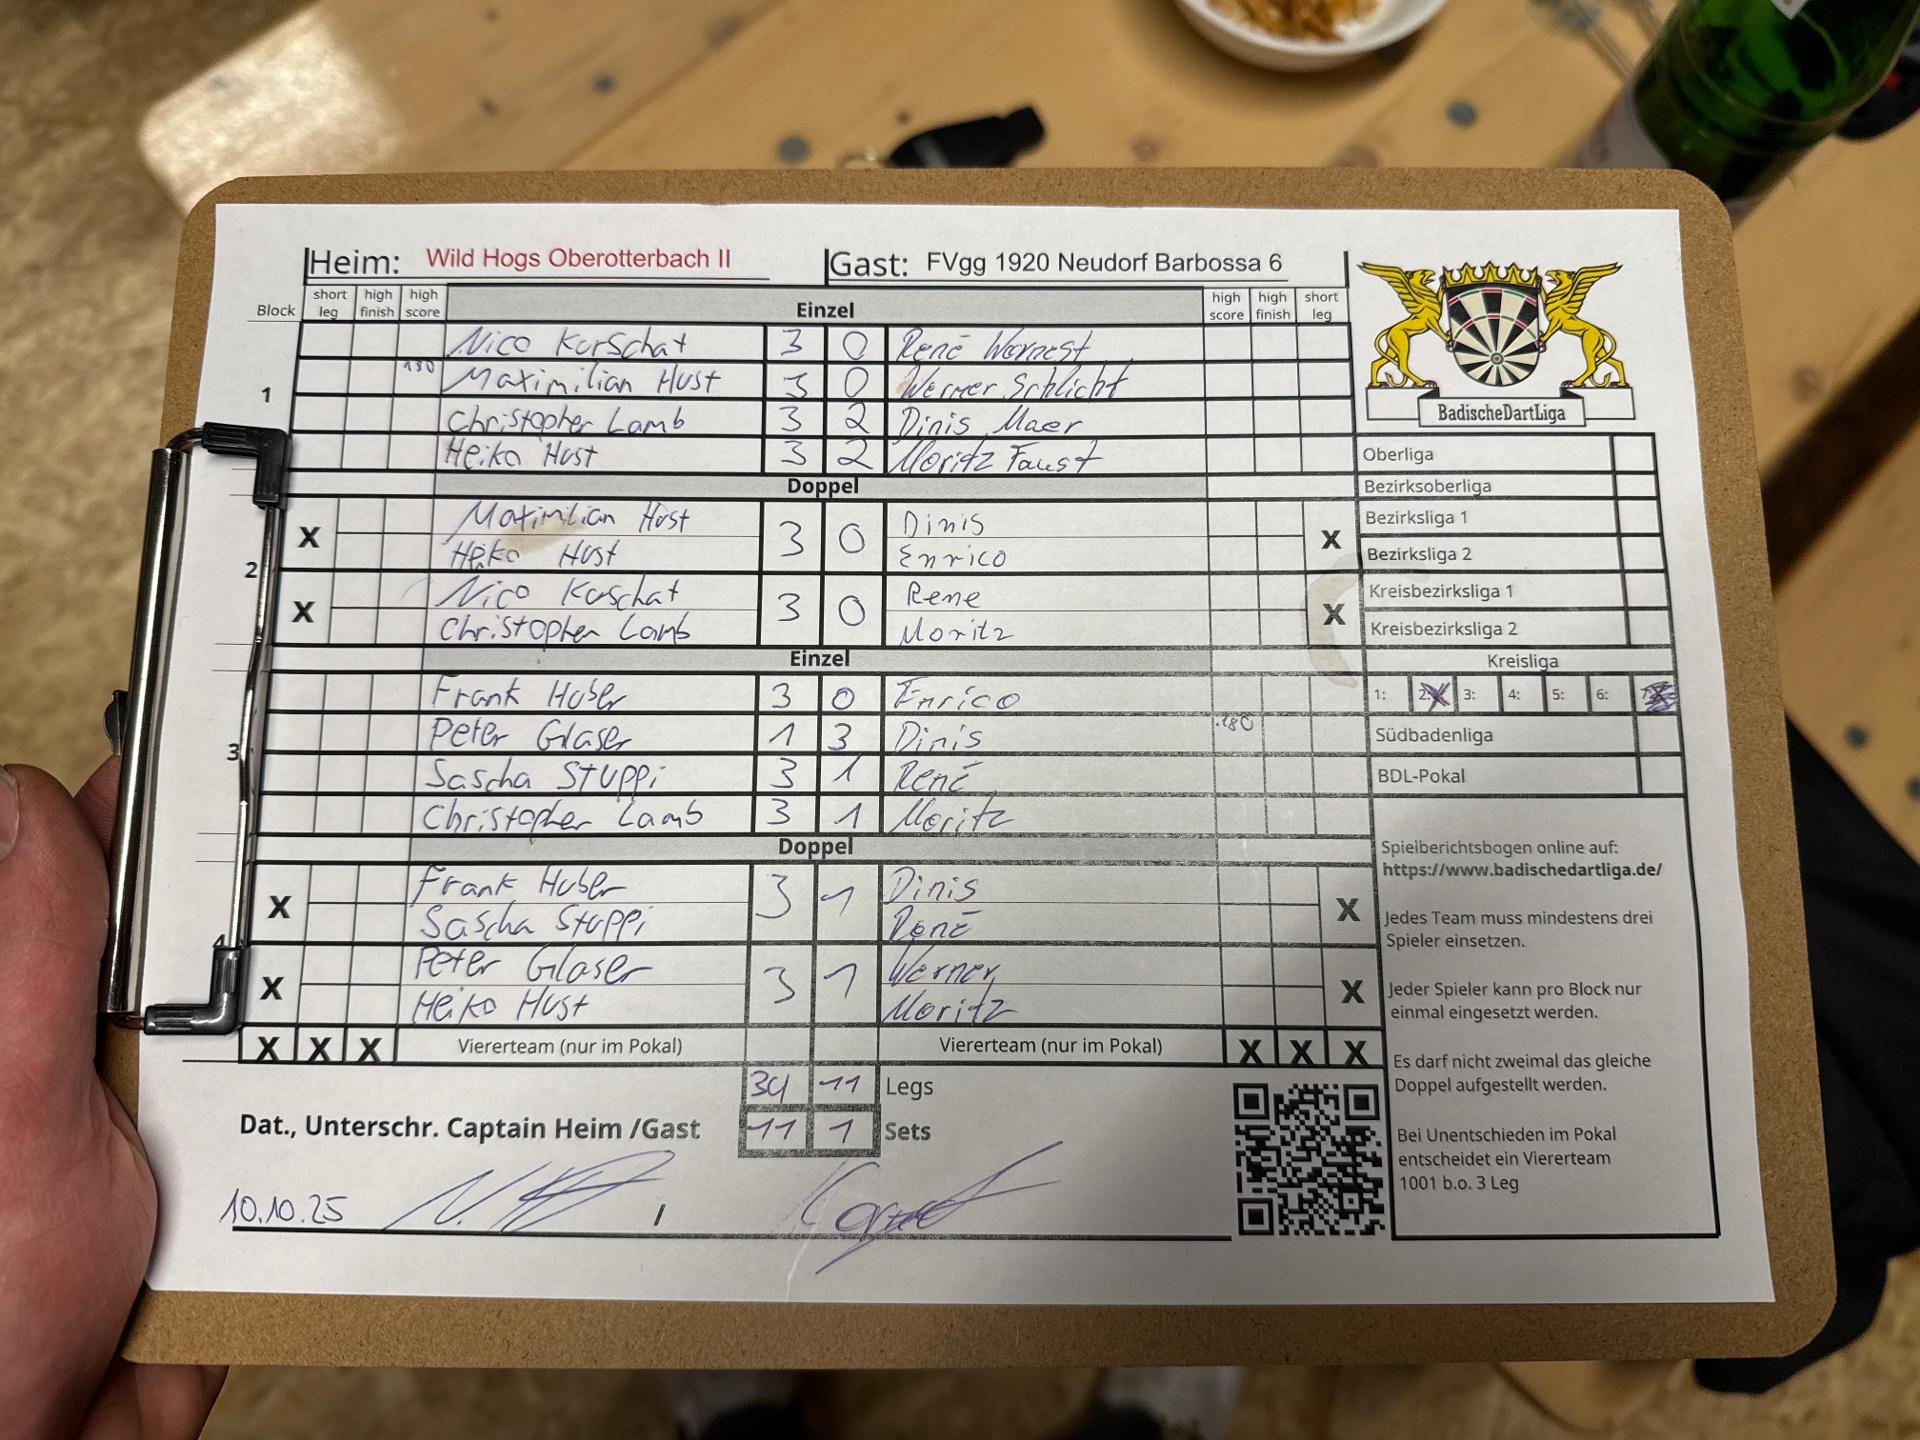 Heim: Wild Hogs Oberotterbach II Gast: FVgg 1920 Neudorf Barbossa 6
Block short leg high finish high score Einzel high score high finish short leg
Nico Kurschat 3 0 René Wernest
180 Maximilian Hust 3 0 Werner Schlicht
1
Christopher Lamb 3 2 Dinis Maer
Heiko Hust 3 2 Moritz Faust
Doppel
X Maximilian Hust 3 0 Dinis X
Heiko Hust Enrico
2
X Nico Kurschat 3 0 Rene X
Christopher Lamb Moritz
Einzel
Frank Huber 3 0 Enrico
Peter Glaser 1 3 Dinis 180
3
Sascha Stuppi 3 1 René
Christopher Lamb 3 1 Moritz
Doppel
X Frank Huber 3 1 Dinis X
Sascha Stuppi René
4
X Peter Glaser 3 1 Werner X
Heiko Hust Moritz
X X X Viererteam (nur im Pokal) Viererteam (nur im Pokal) X X X
34 11 Legs
Dat., Unterschr. Captain Heim /Gast 11 1 Sets
10.10.25 /
BadischeDartLiga
Oberliga
Bezirksoberliga
Bezirksliga 1
Bezirksliga 2
Kreisbezirksliga 1
Kreisbezirksliga 2
Kreisliga
1: 2: X 3: 4: 5: 6: 7:
Südbadenliga
BDL-Pokal
Spielberichtsbogen online auf:
https://www.badischedartliga.de/
Jedes Team muss mindestens drei
Spieler einsetzen.
Jeder Spieler kann pro Block nur
einmal eingesetzt werden.
Es darf nicht zweimal das gleiche
Doppel aufgestellt werden.
Bei Unentschieden im Pokal
entscheidet ein Viererteam
1001 b.o. 3 Leg